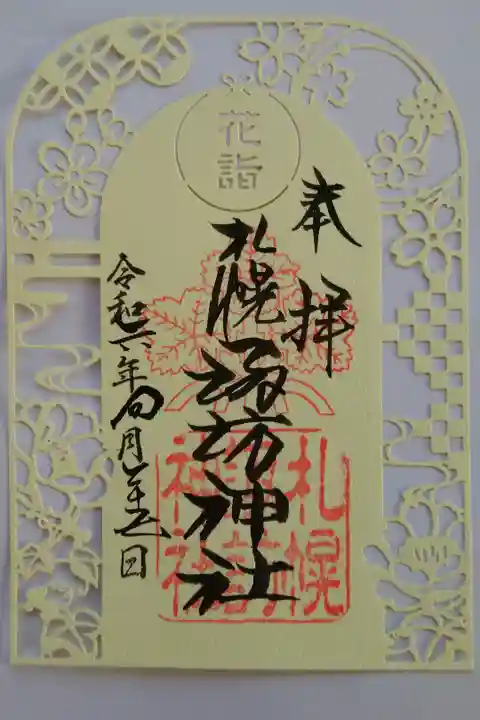 花詣
奉拝
札幌諏訪神社
札幌諏訪神社
令和六年四月
日